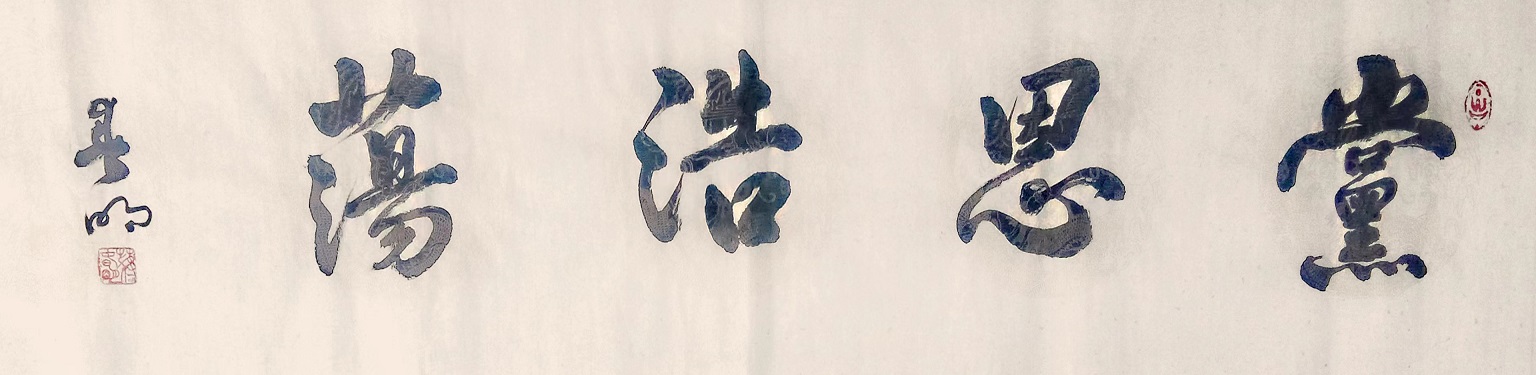 黨恩浩蕩